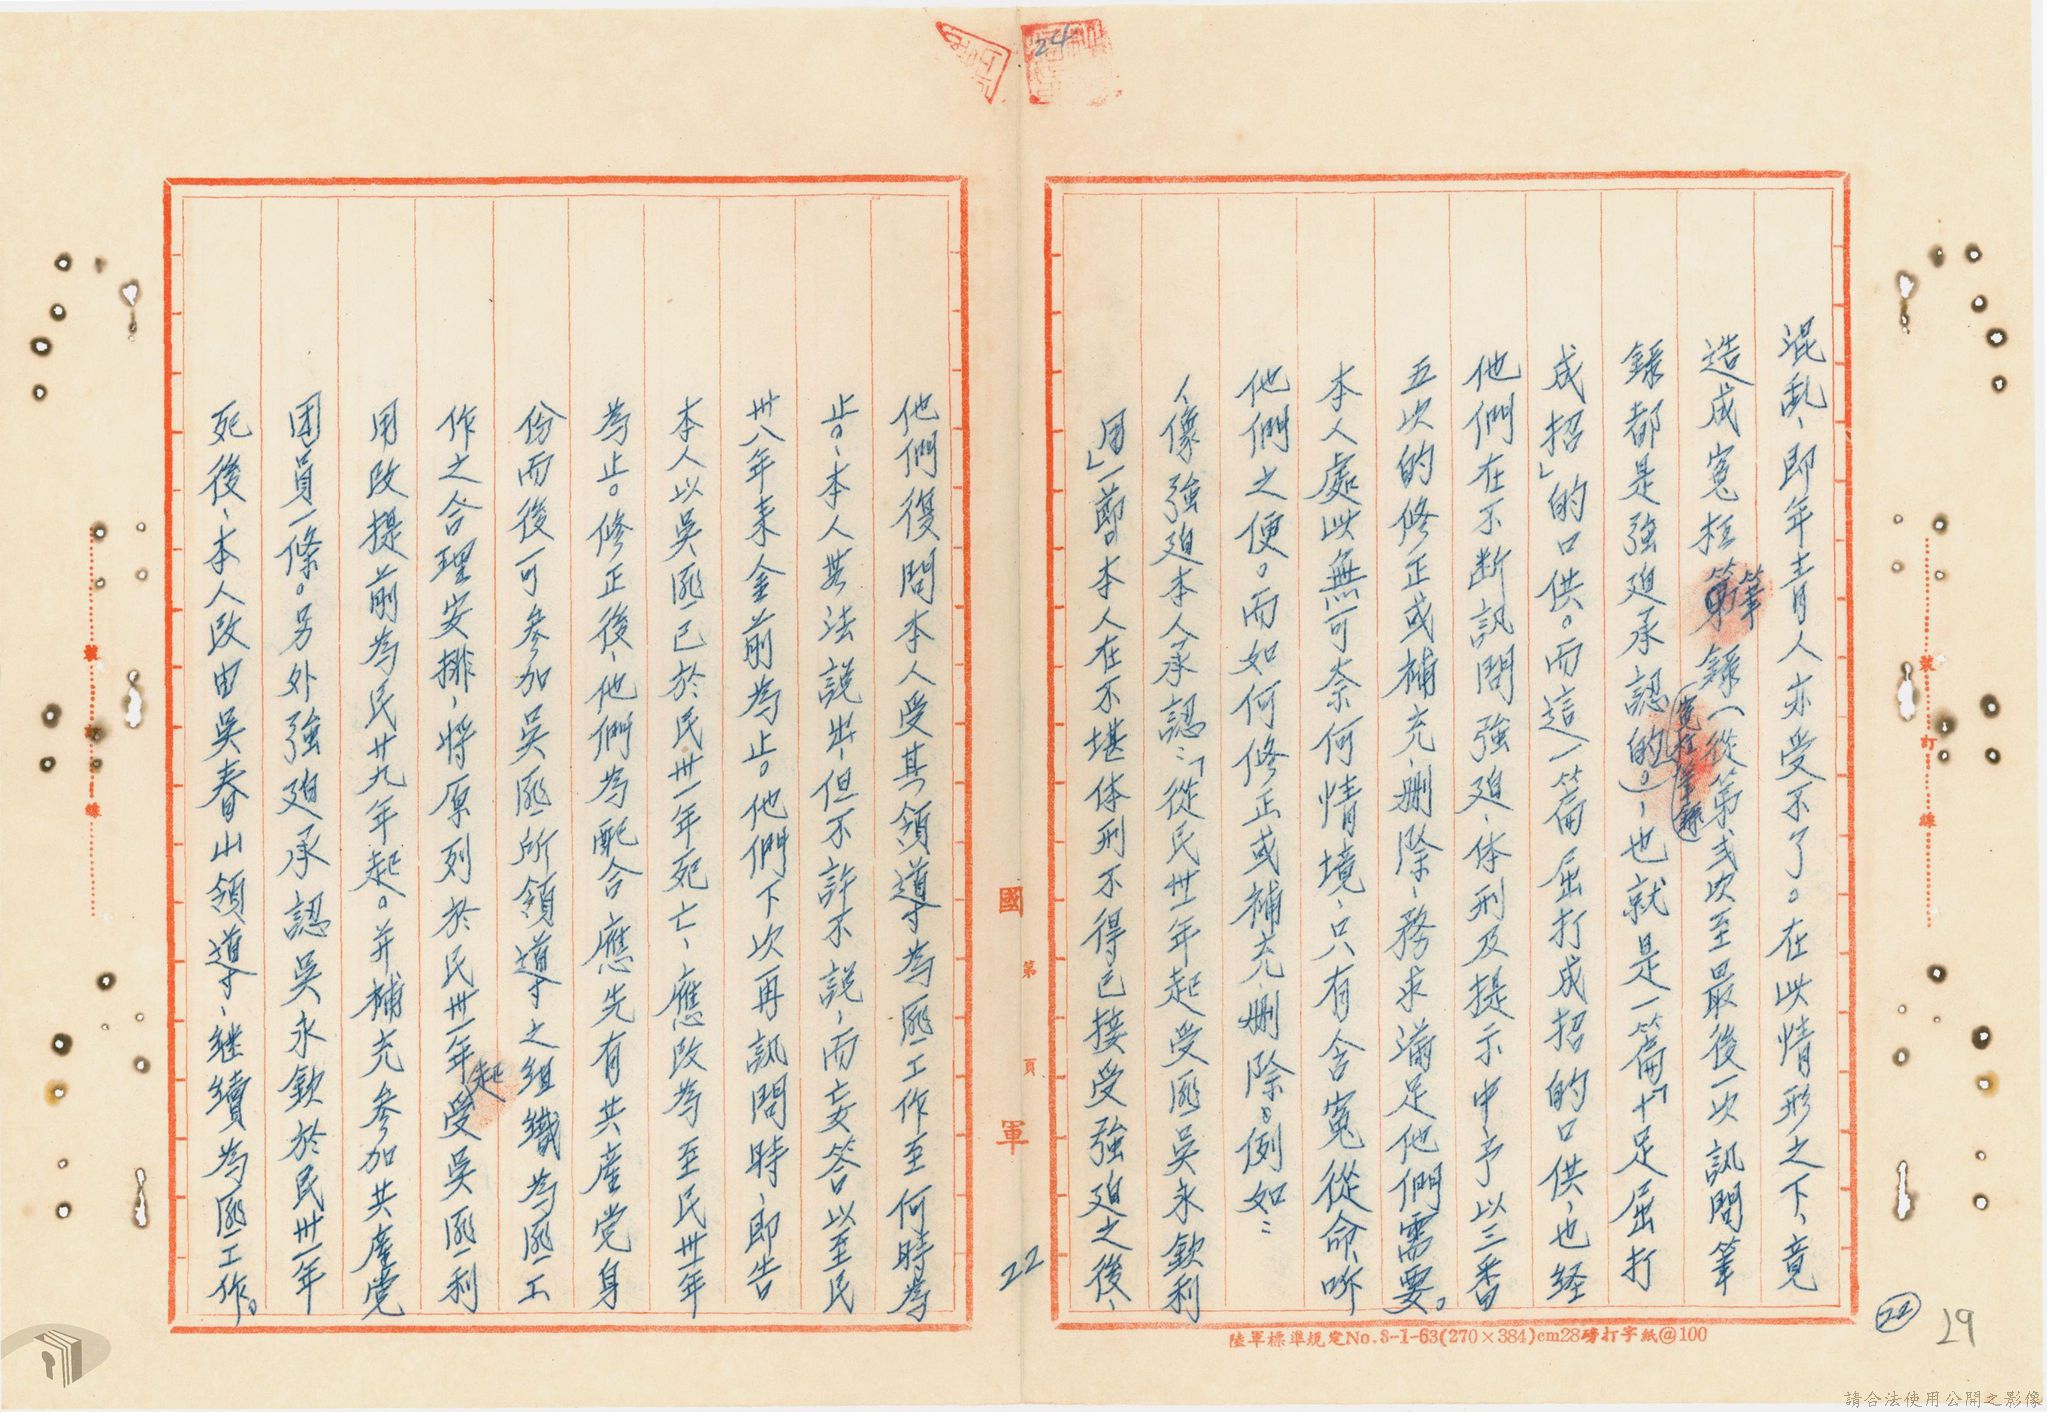 混乱、即年青人亦受不了。在此情形之下、竟
造成寃枉筆錄(從第弍次至最後一次訊問筆
錄都是強迫承認的。)(寃枉筆錄)、也就是一篇「十足屈打
成招」的口供。而這一篇屈打成招的口供、也経
他們在不断訊問強迫、体刑及提示中予以三番
五次的修正或補充、删除、務求滿足他們需要。
本人處此無可奈何情境、只有含寃從命、听
他們之便。而如何修正或補充、删除。例如：
㇏像強迫本人承認：「從民卅一年起受匪吳永欽利
用」一節。本人在不堪体刑不得已接受強迫之後、
他們復問本人受其領導為匪工作至何時為
止。、本人無法說出、但不許不說、而妄答以至民
卅八年来金前為止。他們下次再訊問時、即告
本人以吳匪已於民卅一年死亡、應改為至民卅一年
為止。修正後、他們為配合應先有共產党身
份而後可參加吳匪所領導之組織為匪工
作之合理安排、将原列於民卅一年起受吳匪利
用改提前為民廿九年起。并補充參加共產党
团員一條。另外強迫承認吳永欽於民卅一年
死後、本人改由吳春山領導、継續為匪工作。
國軍
第 頁
22
24
22
29
裝訂線
裝訂線
陸軍標準規定No.8-1-63(270×384)cm28磅打字紙@100
請合法使用公開之影像